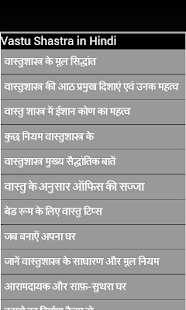 Vastu Shastra in Hindi
वास्तुशास्त्र के मूल सिद्धांत
वास्तुशास्त्र की आठ प्रमुख दिशाएं एवं उनक महत्व
वास्तु शास्त्र में ईशान कोण का महत्व
कुछ नियम वास्तुशास्त्र के
वास्तुशास्त्र मुख्य सैद्धांतिक बातें
वास्तु के अनुसार ऑफिस की सज्जा
बेड रूम के लिए वास्तु टिप्स
जब बनाएँ अपना घर
जानें वास्तुशास्त्र के साधारण और मूल नियम
आरामदायक और साफ़-सुथरा घर